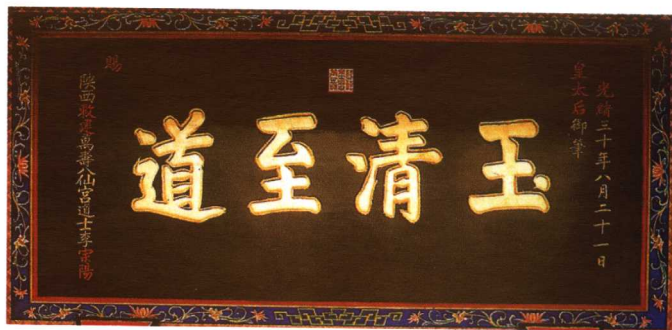 光緒三十年八月二十一日
皇太后御筆
玉清至道
賜
陝西敕建萬壽八仙宮道士李宗陽